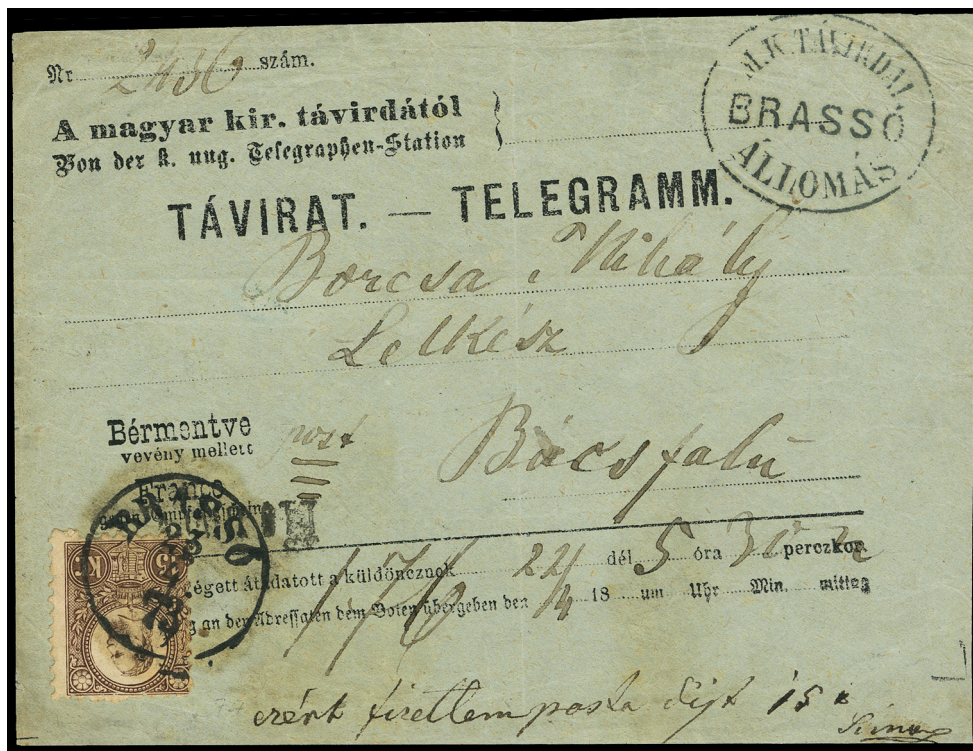 Nr 2436 szám.
A magyar kir. távirdától
Von der k. ung. Telegraphen-Station
M. K. TÁVIRDAI
BRASSÓ
ÁLLOMÁS
TÁVIRAT. — TELEGRAMM.
Borcsa Mihály
Lelkész
Bérmentve
vevény mellett
post
Bácsfalu
Franco
BRASSÓ
23
73
15 Kr
égett átadatott a küldöncznek 24 dél 5 óra perczkor
an den Adressaten dem Boten übergeben den 4 18 um Uhr Min. mittag
ezért fizettem posta dijt 15 k